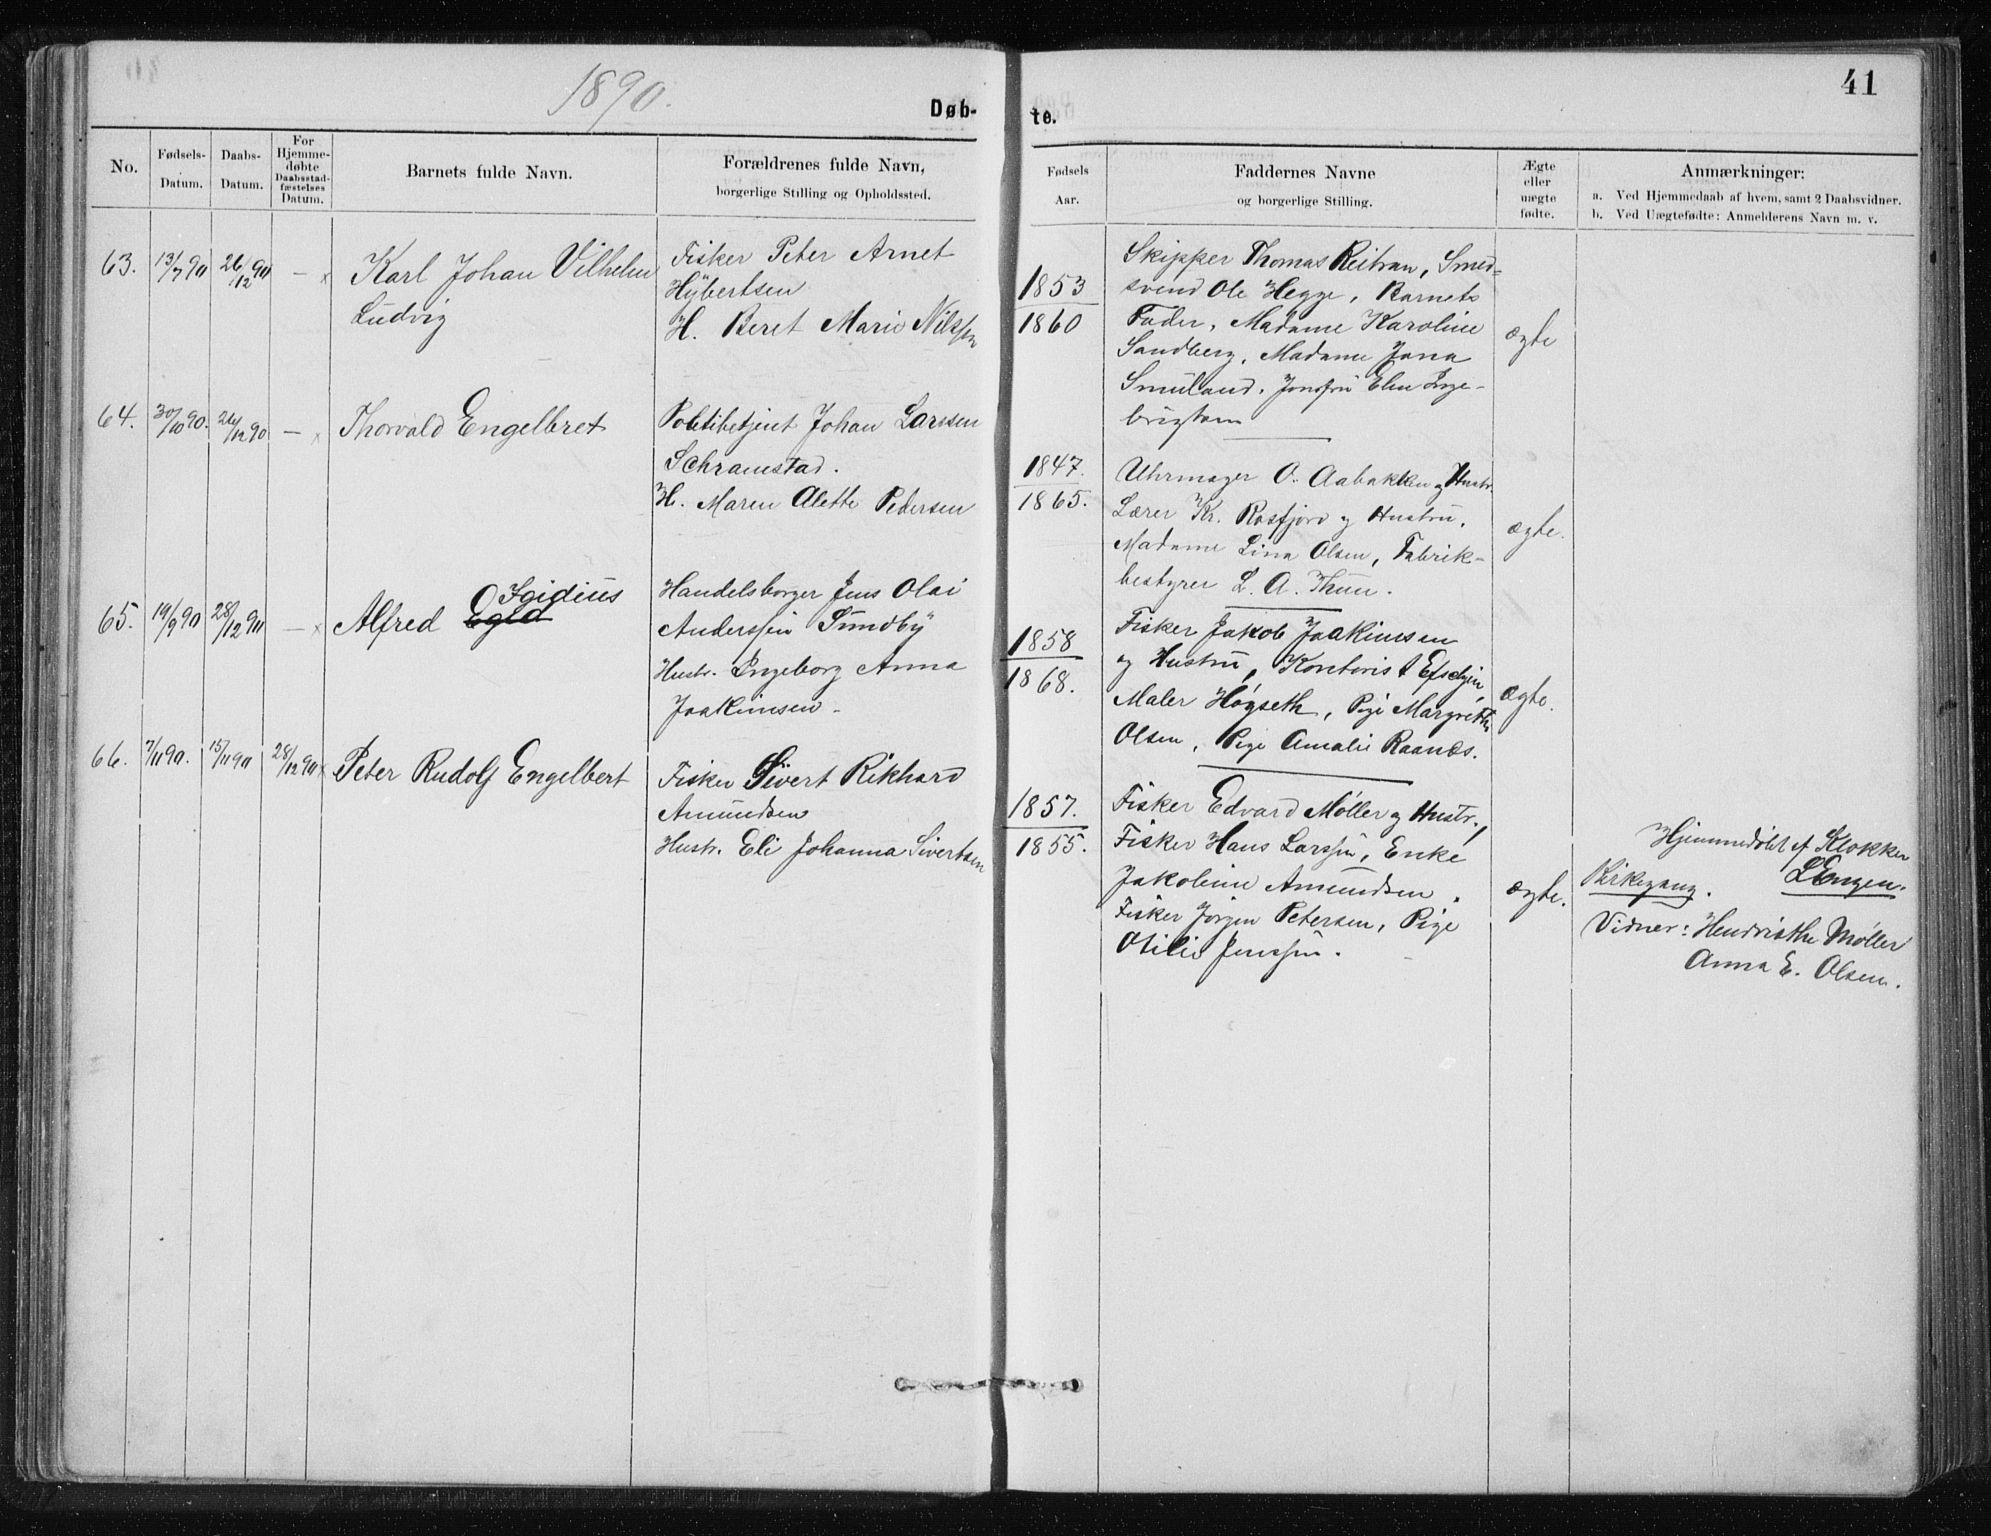 1890.
Døb-
No.
Fødsels-
Datum.
Daabs-
Datum.
For
Hjemme-
døbte
Daabsstad-
fæstelses
Datum.
Barnets fulde Navn.
Forældrenes fulde Navn,
borgerlige Stilling og Opholdssted.
63. 13/7 90 26/12 90 — x Karl Johan Vilhelm
Ludvig
Fisker Peter Arnet
Hÿbertsen
H. Beret Marie Nilssen
64. 30/10 90. 26/12 90 — x Thorvald Engelbret
Politibetjent Johan Larssen
Schramstad.
H. Maren Alette Pedersen
Igidius
65. 19/9 90 28/12 90 — x Alfred
Handelsborger Jens Olai
Anderssen Sundby
Hustr. Ingeborg Anna
Joakimsen
66. 7/11 90. 15/11 90 28/12 90 x Peter Rudolf Engelbert
Fisker Sivert Rikhard
Amundsen
Hustr. Eli Johanna Sivertsen
41
te.
Fødsels
Aar.
Faddernes Navne
og borgerlige Stilling.
Ægte
eller
uægte
fødte.
Anmærkninger:
a. Ved Hjemmedaab af hvem, samt 2 Daabsvidner.
b. Ved Uægtefødte: Anmelderens Navn m. v.
1853
1860
Skipper Thomas Reitan, Smed-
svend Ole Hegge, Barnets
Fader, Madame Karoline
Sandberg, Madame Jana
Smuland, Jomfru Elen Inge-
brigtsen
ægte
1847.
1865.
Uhrmager O. Aabakken og Hustr.
Lærer Kr. Rosfjord og Hustru,
Madame Lina Olsen, Fabrik-
bestyrer L. A. Thun.
ægte.
1858
1868.
Fisker Jakob Joakimssen
og Hustru, Kontorist
Maler Høgseth, Pige Margrethe
Olsen, Pige Amalie Raanes.
ægte.
1857.
1855.
Fisker Edvard Møller og Hustr.,
Fisker Hans Larssen, Enke
Jakobine Amundsen,
Fisker Jørgen Petersen, Pige
Otilie Jenssen.
ægte.
Hjemmedøbt af Klokker
Kirkegang. L Engen.
Vidner: Hendrikthe Møller
Anna E. Olsen.